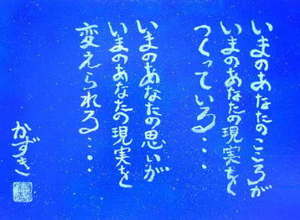 いまのあなたのこころが
いまのあなたの現実を
つくっている・・・
いまのあなたの思いが
いまのあなたの現実を
変えられる・・・
かずき